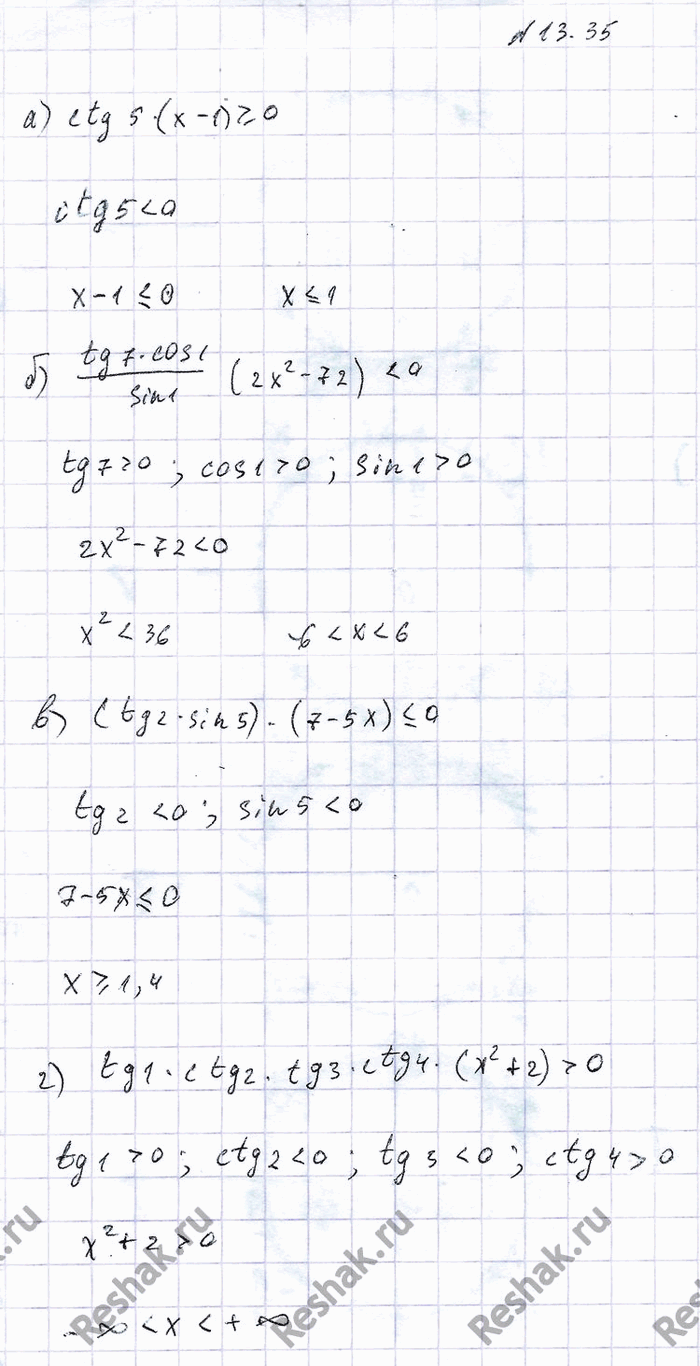 № 13.35
а) ctg 5·(x-1)≥0
ctg5<0
x-1≤0 x≤1
б) tg7·cos1/sin1 (2x²-72) <0
tg7>0; cos1>0; sin1>0
2x²-72<0
x²<36 -6<x<6
в) (tg2·sin5)·(7-5x)≤0
tg2 <0; sin5<0
7-5x≤0
x≥1,4
г) tg1·ctg2·tg3·ctg4·(x²+2)>0
tg1>0; ctg2<0; tg3<0; ctg4>0
x²+2>0
-∞<x<+∞
Reshak.ru
Reshak.ru
Reshak.ru